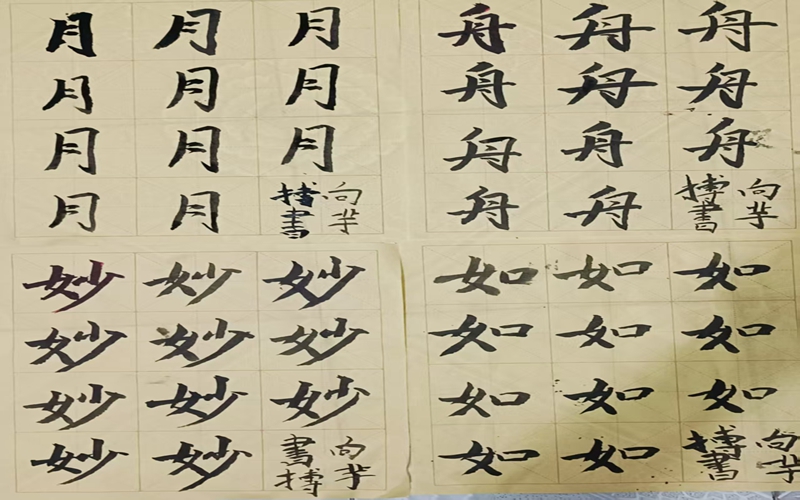 月月月
月月月
月月月
月月
向芊
搏書
舟舟舟
舟舟舟
舟舟舟
舟舟
向芊
搏書
妙妙妙
妙妙妙
妙妙妙
妙妙
向芊
書搏
如如如
如如如
如如如
如如
向芊
搏書